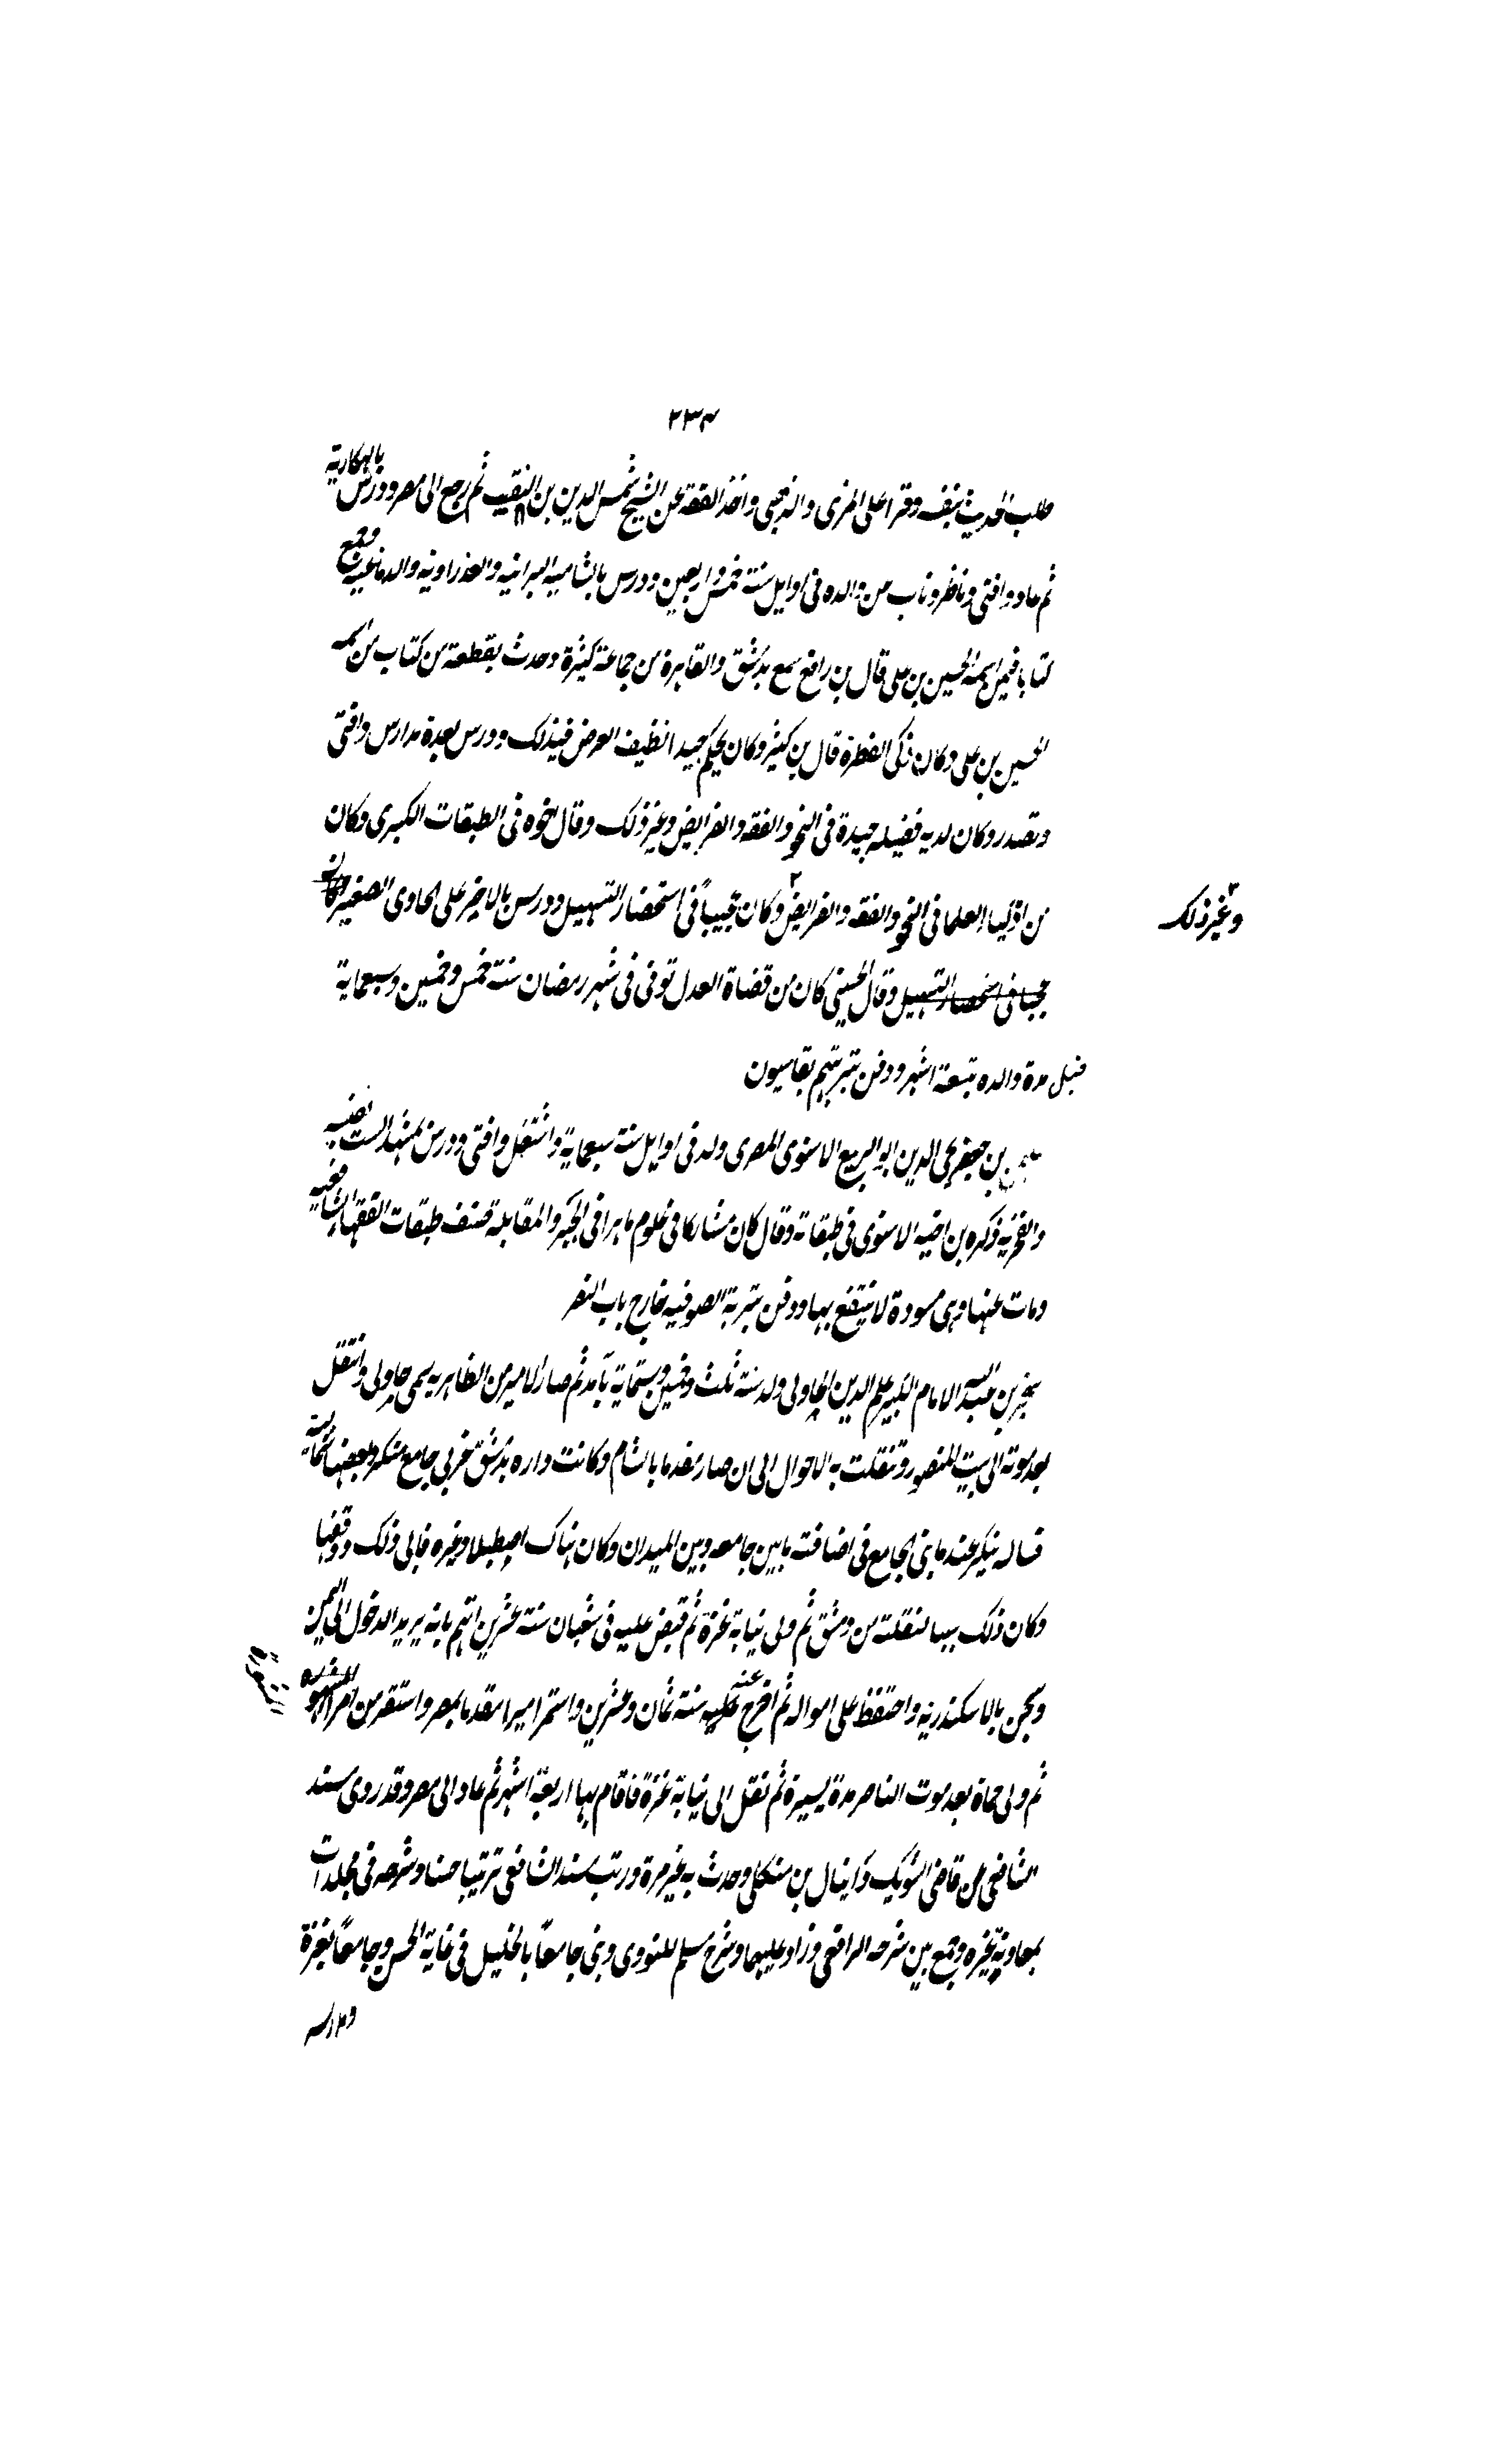 ٢٣٤
طلب الحديث بنفسه وقرا على المزى والذهبى واخذ الفقه عن الشيخ شمس الدين بن النقيب ثم رجع الى مصر ودرس بالهكارية
ثم عاد وافتى وناظر وناب من والده فى اوايل سنة خمس واربعين ودرس بالشامية البرانية والعذراوية والدماغية وجمع
كتابا فيمن اسمه الحسين بن على قال بن رافع سمع بدمشق والقاهرة من جماعة كثيرة وحدث بقطعة من كتاب من اسمه
الحسين بن على وكان ذكى الفطرة قال بن كثير وكان يحكم جيدا نظيف العرض فى ذلك ودرس بعدة مدارس وافتى
وتصدر وكان لديه فضيلة جيدة فى النحو والفقه والفرايض وغير ذلك وقال اخوه فى الطبقات الكبرى وكان
من اذكيا العلما فى النحو والفقه والفرايض وكان عجيباً فى استحضار التسهيل ودرس بالاخير على الحاوى الصغير وكان
وغير ذلك
عجيبا فى استحضار التسهيل وقال الحسينى كان من قضاة العدل توفى فى شهر رمضان سنة خمس وخمسين وسبعماية
قبل مدة والده بتسعة اشهر ودفن بتربتهم بقاسيون
سليمن بن جعفر محى الدين ابو الربيع الاسنوى المصرى ولد فى اوايل سنة سبعماية واشتغل وافتى ودرس بمشهد الست نفيسه
والفخرية ذكره بن اخيه الاسنوى فى طبقاته وقال كان مشاركا فى علوم ماهرا فى الجبر والمقابلة صنف طبقات الفقها الشافعيه
ومات عنها وهى مسودة لا ينتفع بها ودفن بتربة الصوفيه خارج باب النصر
سنجر بن عبد الله الامام الكبير علم الدين الجاولى ولد سنة ثلث وخمسين وستماية بآمد ثم صار لامير من الظاهريه يسمى جاولى وانتقل
بعد موته الى بيت المنصور وتنقلت به الاحوال الى ان صار مقدما بالشام وكانت داره بدمشق غربى جامع تنكز وبعضها شماليه
فساله تنكز عند ما بنى الجامع فى اضافته ما بين جامعه وبين الميدان وكان هناك اصطبلا وغيره فابى ذلك ووقفها
وكان ذلك سببا لنقلته من دمشق ثم ولى نيابة غزة ثم قبض عليه فى شعبان سنة عشرين اتهم بانه يريد الدخول الى اليمن
وسجن بالاسكندرية واحتفظ على امواله ثم افرج عنه سنة ثمان وعشرين واستمر اميرا مقدما بمصر واستقر من امرا المشوره
ثم ولى حماة بعد موت الناصر مدة يسيرة ثم نقل الى نيابة غزة فاقام بها اربعة اشهر ثم عاد الى مصر وقد روى مسند
الشافعى عن قاضى الشوبك دانيال بن منكلى وحدث به غير مرة ورتب مسند الشافعى ترتيبا حسنا وشرحه فى مجلدات
بمعاونة غيره وجمع بين شرحه الرافعى وزاد عليهما وشرح مسلم للنووى وبنى جامعاً بالخليل فى غاية الحسن وجامعاً بغزة
ومدرسه